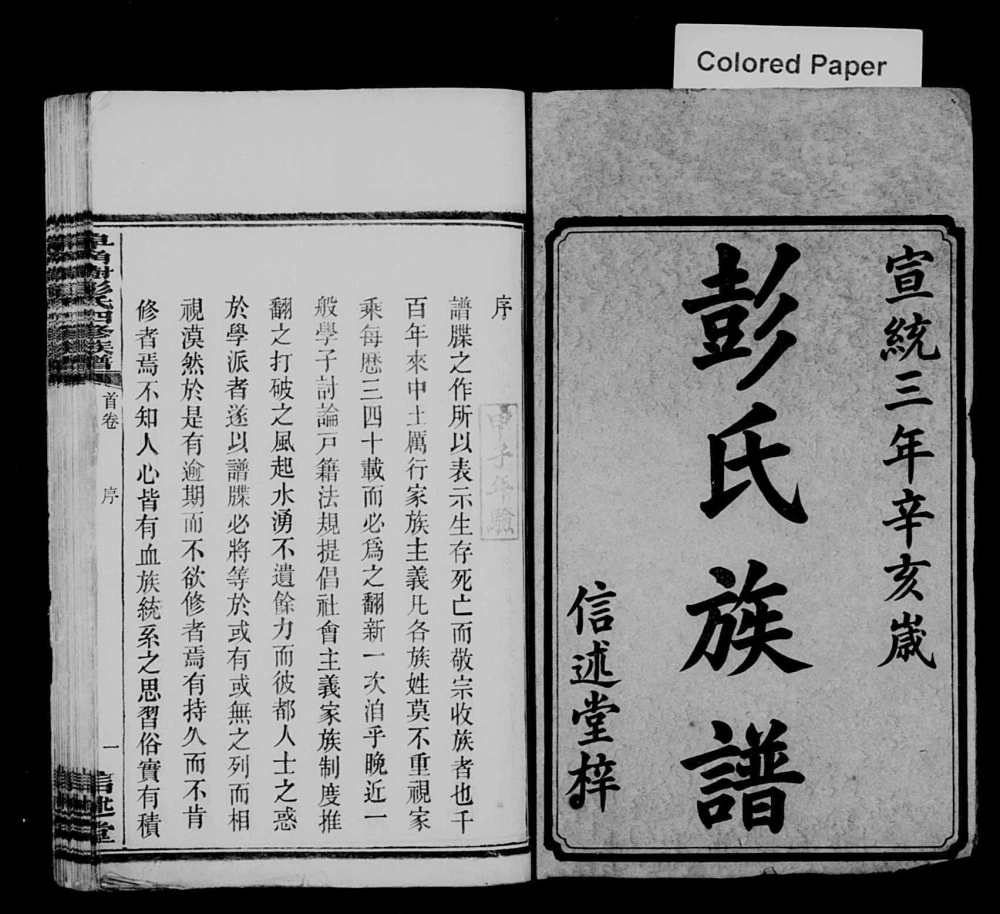 Colored Paper
宣統三年辛亥歲
彭氏族譜
信述堂梓
序
甲子年驗
譜牒之作所以表示生存死亡而敬宗收族者也千
百年來中土厲行家族主義凡各族姓莫不重視家
乘每歷三四十載而必爲之翻新一次洎乎晚近一
般學子討論戸籍法規提倡社會主義家族制度推
翻之打破之風起水湧不遺餘力而彼都人士之惑
於學派者遂以譜牒必將等於或有或無之列而相
視漠然於是有逾期而不欲修者焉有持久而不肯
修者焉不知人心皆有血族統系之思習俗實有積
彭氏四修族譜
首卷
序
一
信述堂